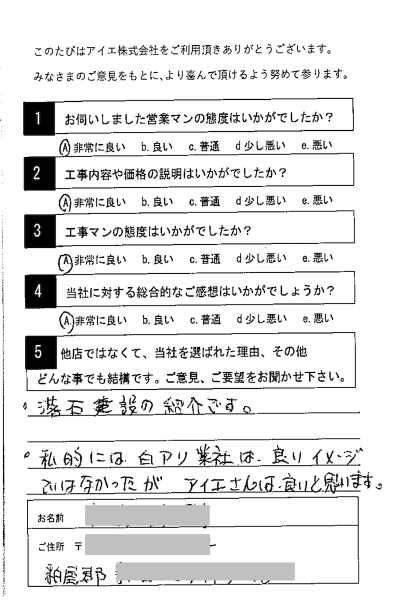 このたびはアイエ株式会社をご利用頂きありがとうございます。
みなさまのご意見をもとに、より喜んで頂けるよう努めて参ります。
1 お伺いしました営業マンの態度はいかがでしたか？
A 非常に良い b. 良い c. 普通 d 少し悪い e. 悪い
2 工事内容や価格の説明はいかがでしたか？
A 非常に良い b. 良い c. 普通 d 少し悪い e. 悪い
3 工事マンの態度はいかがでしたか？
A 非常に良い b. 良い c. 普通 d 少し悪い e. 悪い
4 当社に対する総合的なご感想はいかがでしょうか？
A 非常に良い b. 良い c. 普通 d 少し悪い e. 悪い
5 他店ではなくて、当社を選ばれた理由、その他
どんな事でも結構です。ご意見、ご要望をお聞かせ下さい。
。落石建設の紹介です。
。私的には白アリ業社は、良いイメージ
ではなかったが アイエさんは、良いと思います。
お名前
ご住所 〒
粕屋郡